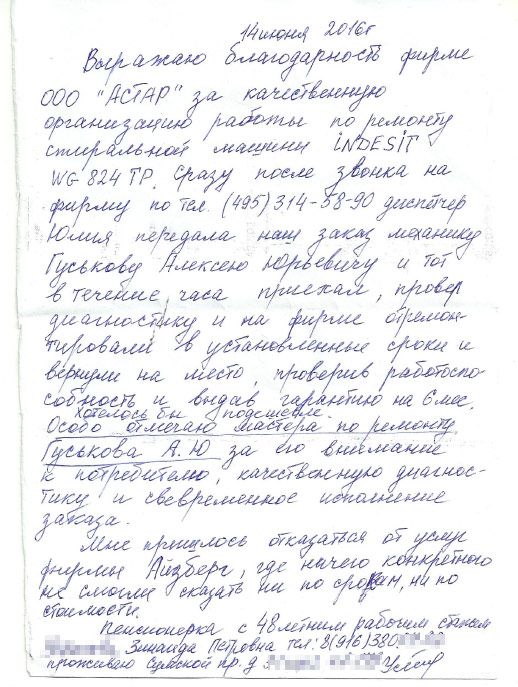 14 июня 2016г
Выражаю благодарность фирме
ООО "АСТАР" за качественную
организацию работы по ремонту
стиральной машины INDESIT
WG 824 TP. Сразу после звонка на
фирму по тел. (495) 314-58-90 диспетчер
Юлия передала наш заказ механику
Гуськову Алексею Юрьевичу и тот
в течение часа приехал, провер
диагностику и на фирме отремон-
тировали в установленные сроки и
вернули на место, проверив работоспо-
собность и выдав гарантию на 6 мес.
Хотелось бы подешевле.
Особо отмечаю мастера по ремонту
Гуськова А.Ю за его внимание
к потребителю, качественную диагнос-
тику и свевременное исполнение
заказа.
Мне пришлось отказаться от услуг
фирмы Айзберг, где ничего конкретного
не смогли сказать ни по срокам, ни по
стоимости.
Пенсионерка с 48 летним рабочим стажем
Зинаида Петровна тел: 8(916)380
проживаю Сумской пр. д